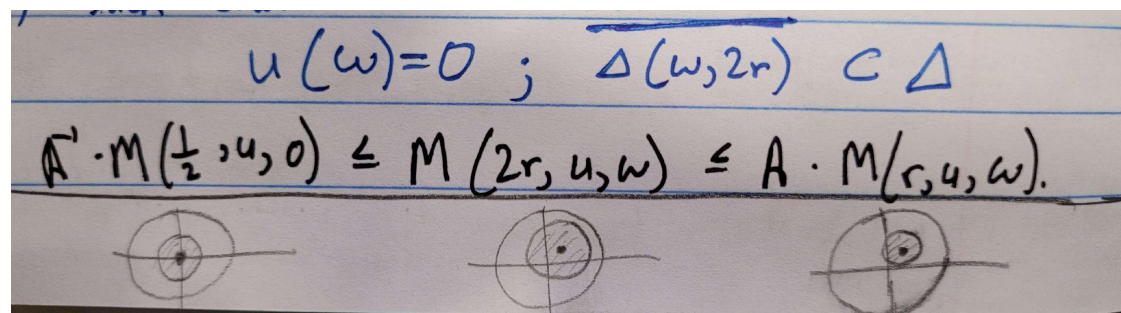 u(ω)=0 ; \overline{Δ(ω,2r)} ⊂ Δ
A⁻¹·M(½,u,0) ≤ M(2r,u,ω) ≤ A·M(r,u,ω).